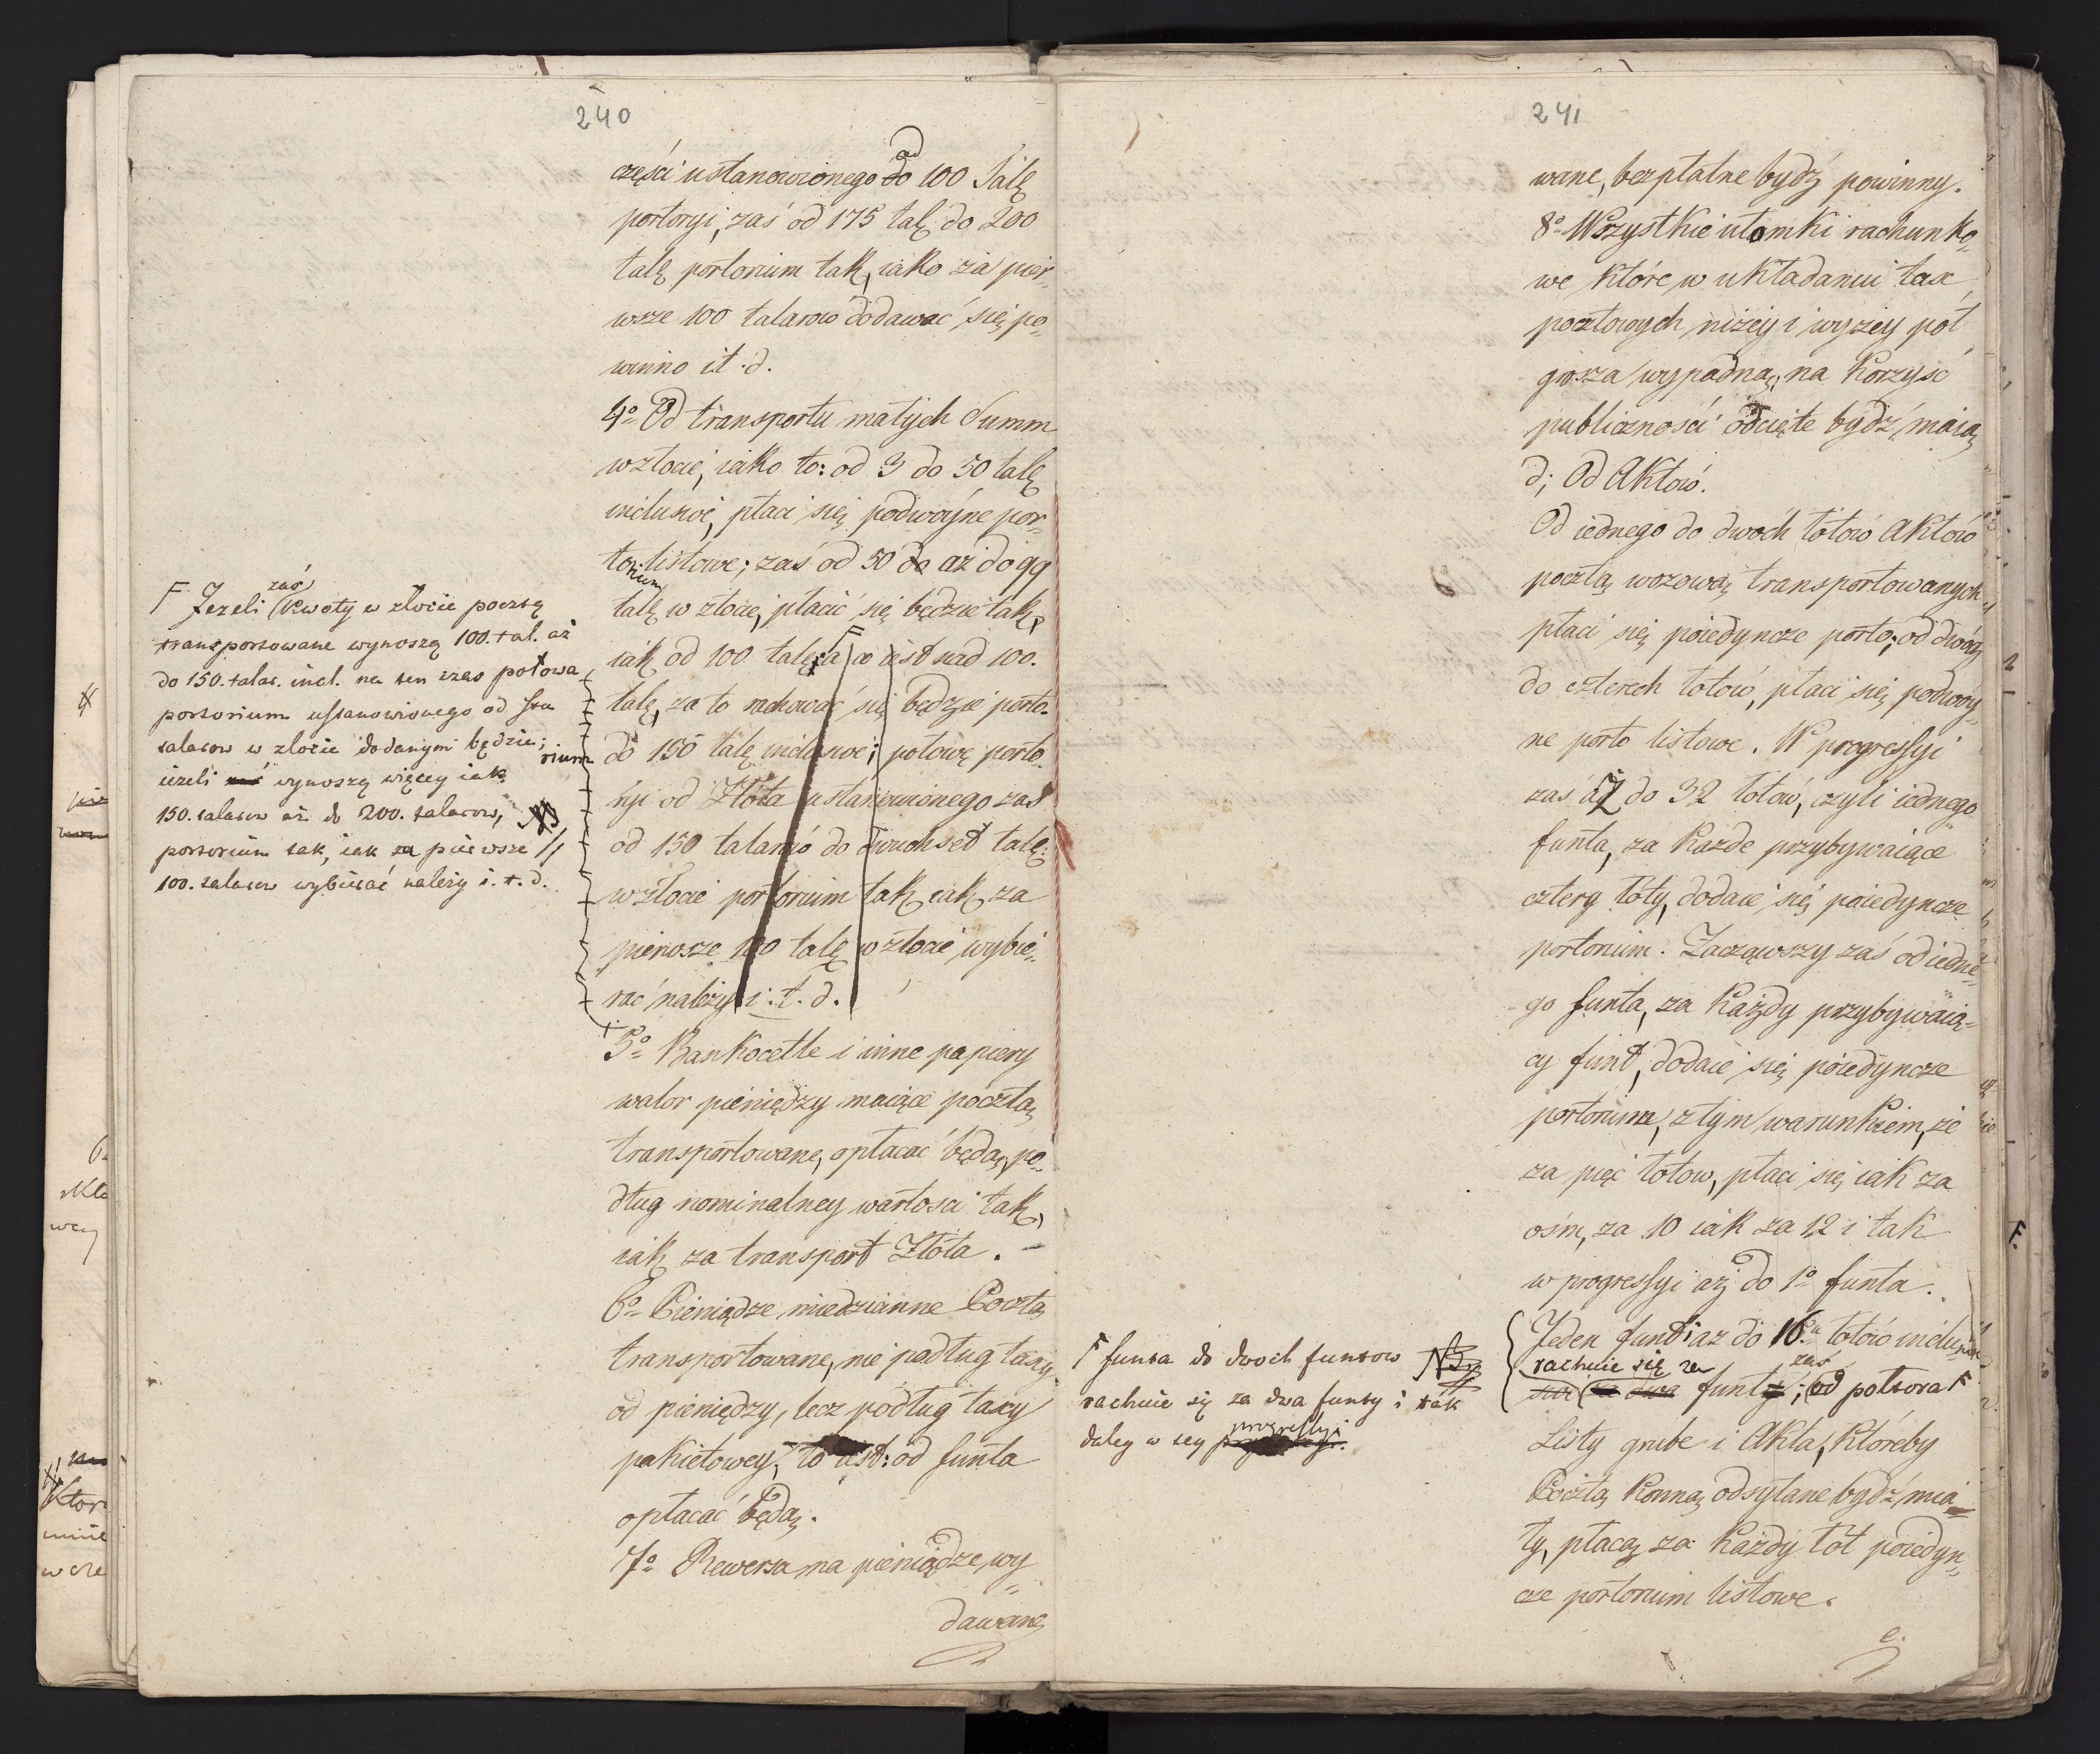 240
części ustanowionego od do 100 Talę
portoryi, zaś od 175 talę do 200
talę portorium tak, iako za pier„
wsze 100 talarow dodawać się po„
winno i t. d.
4o Od transportu małych Summ
w złocie, iako to: od 3 do 50 talę
inclusive, płaci się podwóyne por„
torium listowe; zaś od 50 do aż do 99
talę w złocie, płacić się będzie tak,
iak od 100 talę; a co iest nad 100.
talę, za to rachować się będzie porto„
rium do 150 talę inclusive; połowę porto„
ryi od Złota ustanowionego zaś
od 150 talarów do dwuchset talę:
w złocie portorium tak iak za
pierwsze 100 talę w złocie wybie„
rać należy i. t. d.
F Jezeli zaś kwoty w złocie pocztą
transportowane wynoszą 100. tal. aż
do 150. talar. incl. na ten czas połowa
portorium ustanowionego od stu
talarow w złocie dodanym będzie;
ieżeli wynoszą więcey iak
150. talarow aż do 200. talarow,
portorium tak, iak za pierwsze
100. talarow wybierać należy i. t. d.
5o Bankocetle i inne papiery
walor pieniędzy maiące pocztą
transportowane, opłacać będą, po„
dług nominalney wartosci tak,
iak za transport Złota. –
6o Pieniądze miedzianne Pocztą
transportowane, nie podług taxy
od pieniędzy, lecz podług taxy
pakietowey, to iest: od funta
opłacać będą.
7o Rewersa na pieniądze, wy„
dawane
241
wane, bezpłatne bydź powinny.
8o Wszystkie ułomki rachunko„
we które w układaniu tax
pocztowych niżey i wyżey pół
grosza wypadną, na korzyść
publiczności odcięte bydź maią
d; Od Aktów.
Od iednego do dwóch łótów Aktów
pocztą wozową transportowanych
płaci się poiedyncze porto; od dwóch
do czterech łotów, płaci się podwóy„
ne porto listowe. W progressyi
zaś aż do 32 łotów, czyli iednego
funta, za każde przybywaiące
cztery łóty, dodaie się poiedyncze
portorium. Zacząwszy zaś od iedne„
go funta, za każdy przybywaią„
cy funt, dodaie się poiedyncze
portorium, z tym warunkiem, że
za pięć łotow, płaci się iak za
ośm, za 10 iak za 12 i tak
w progressyi aż do 1o funta.
Jeden funt i aż do 16tu łotów inclusive
rachuie się za funt; zaś od połtora F
F funta do dwoch funtow
rachuie się za dwa funty i tak
daley w tey progressyi
Listy grube i Akta, któreby
Pocztą konną odsyłane bydź mia„
ły, płacą za każdy łót poiedyn„
cze portorium listowe.
e.